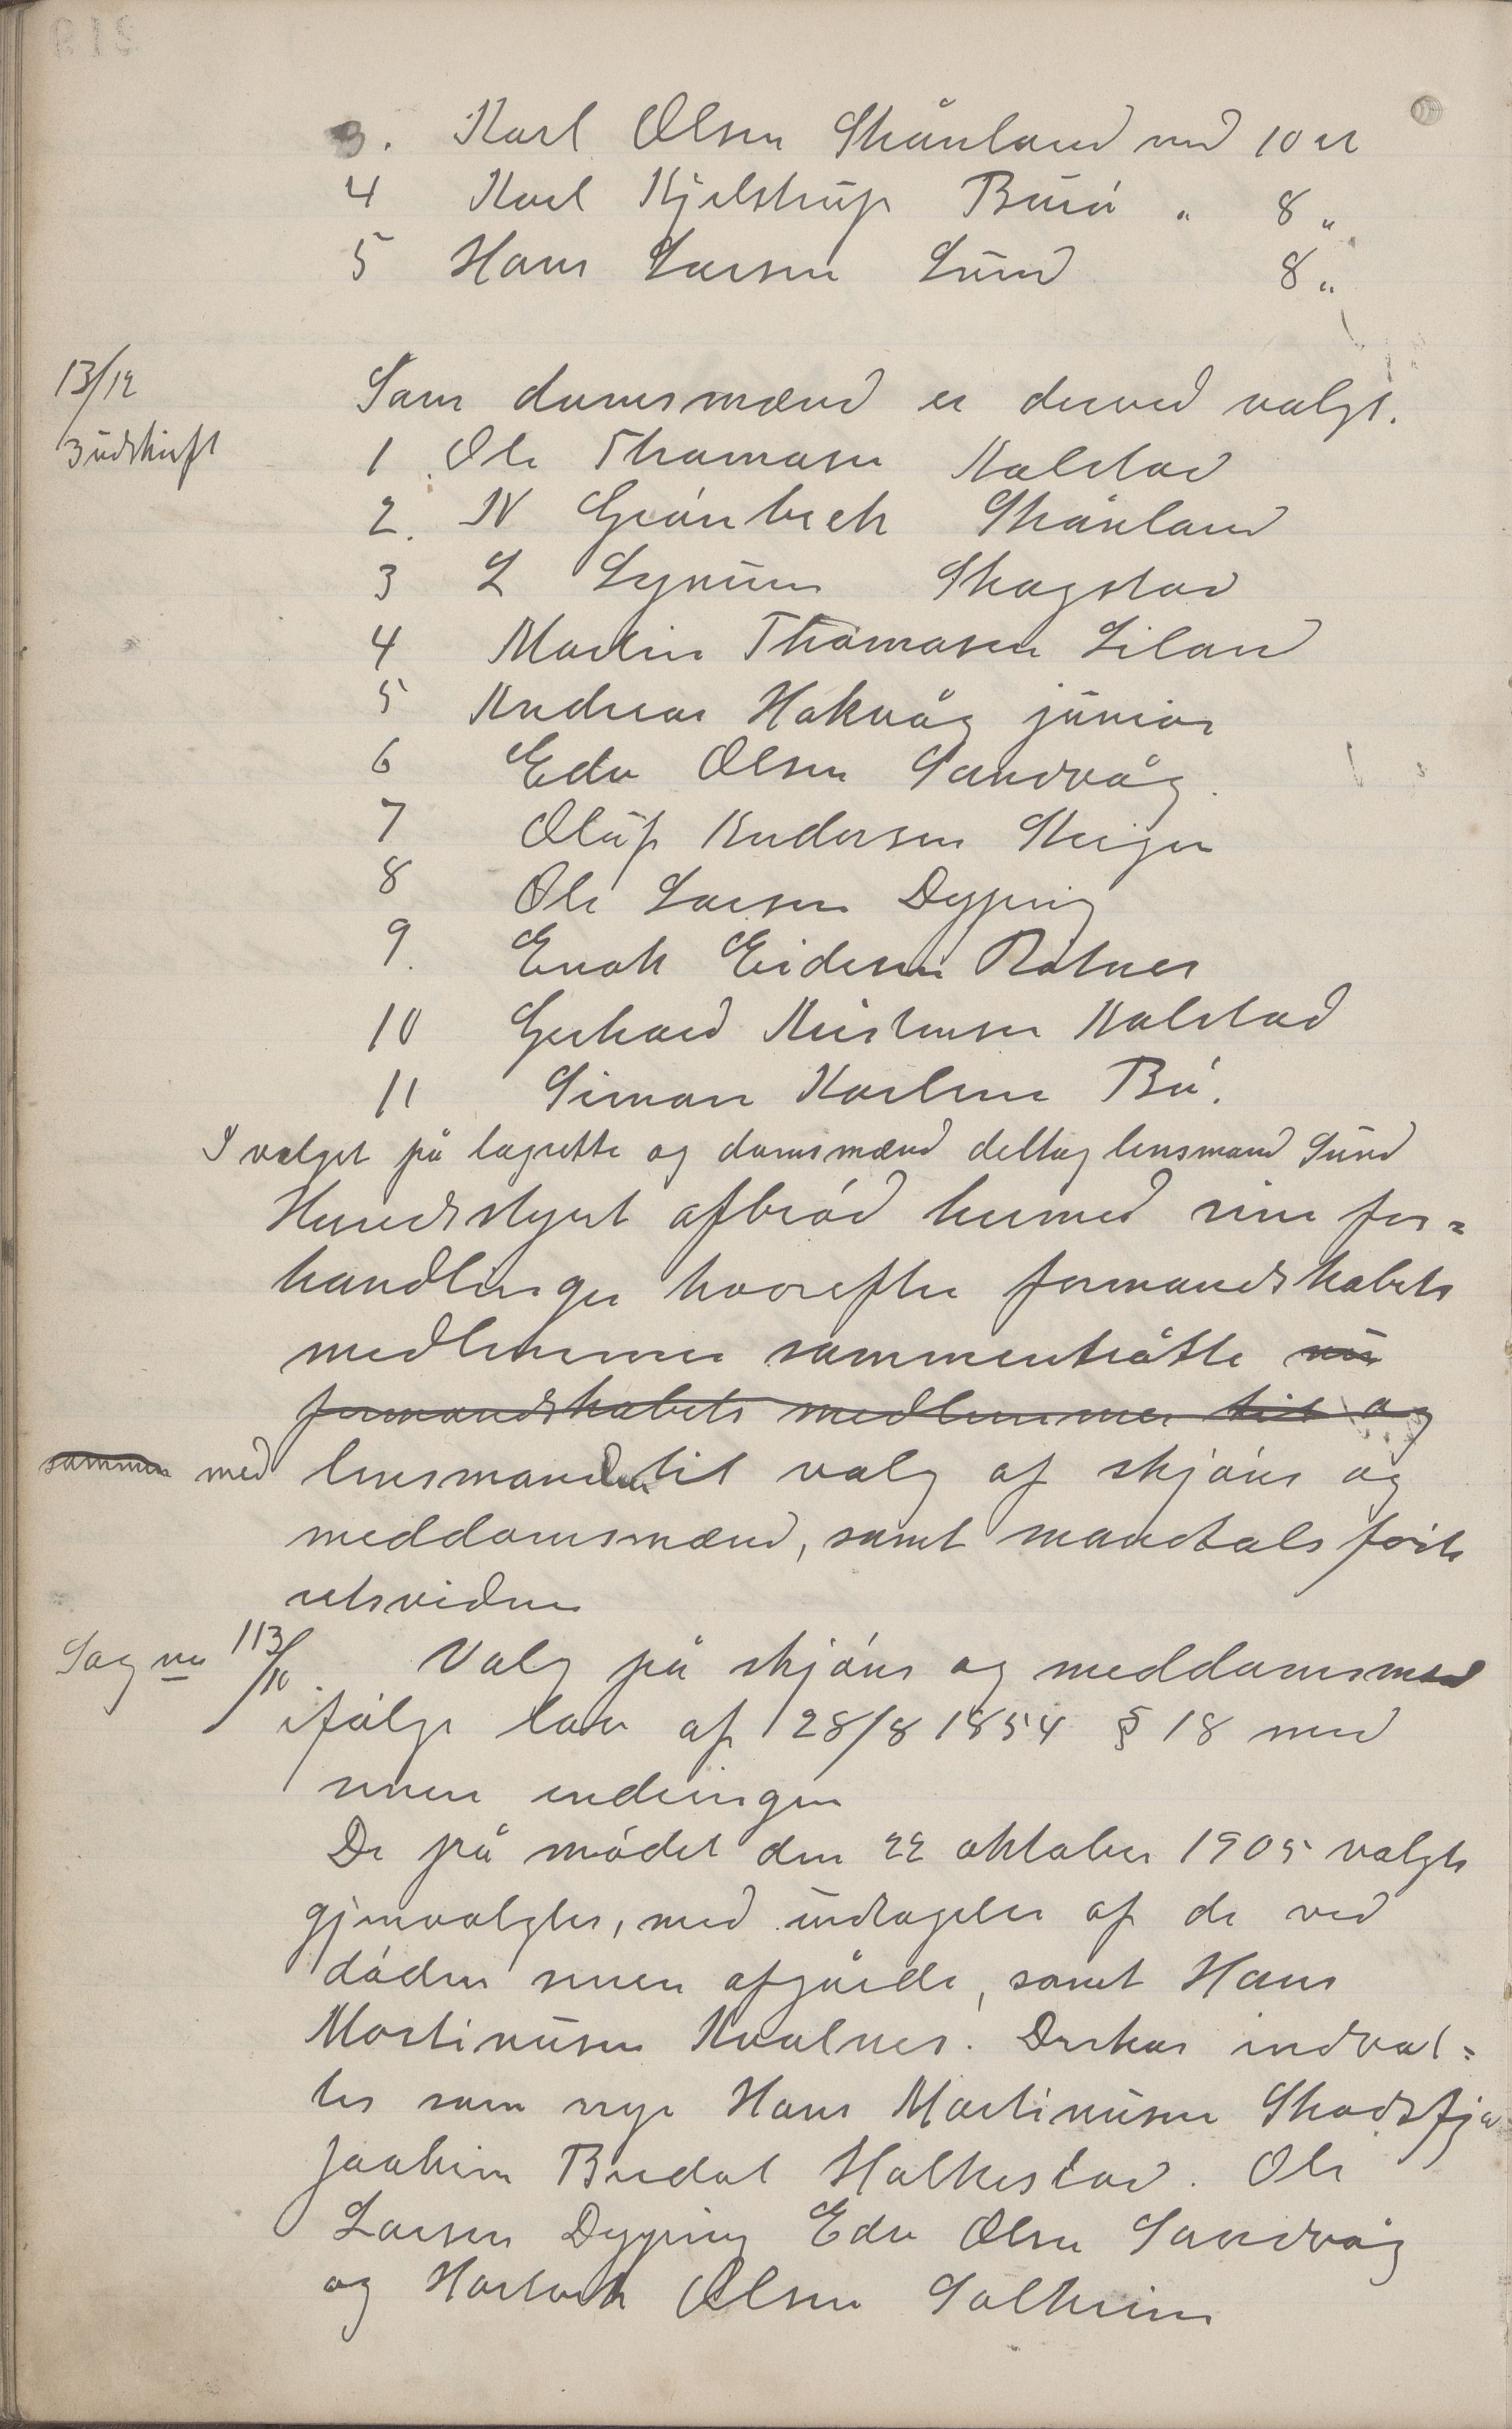 3. Karl Olsen Skånland med 10 st
4 Karl Kjelstrup Buså " 8 "
5 Hans Larsen Sund 8 "
13/12
3 udskrift
Som domsmænd er derved valgt.
1. Ole Thomasen Kalstad
2. N Grønbech Skånland
3 L Lynum Skagstad
4 Martin Thomasen Liland
5 Andreas Hakvåg junior
6 Edv Olsen Sandvåg.
7 Oluf Andersen Steigen
8 Ole Larsen Dyping
9. Enok Eidesen Rotnes
10 Gerhard Kristensen Kalstad
11 Simon Karlsen Bø.
I valget på lagrette og domsmænd deltog lensmand Sund
Heredsstyret afbrød hermed sine for=
handlinger hvorefter formandskabets
medlemmer sammentrådte
formandskabets medlemmer til og
sammen med lensmanden til valg af skjøns og
meddomsmænd, samt mandtals førte
retsvidner
Sag nr 113/10. Valg på skjøns og meddomsmænd
ifølge lov af 28/8 1854 § 18 med
senere endringer
De på mødet den 22 oktober 1905 valgte
gjenvalgtes, med undtagelse af de ved
døden senere afgåede, samt Hans
Martinusen Kvalnes. Derhos indval=
tes som nye Hans Martinusen Skodsfjo
Joakim Bredal Halkestad. Ole
Larsen Dyping Edv Olsen Sandvåg
og Hartvik Olsen Solheim